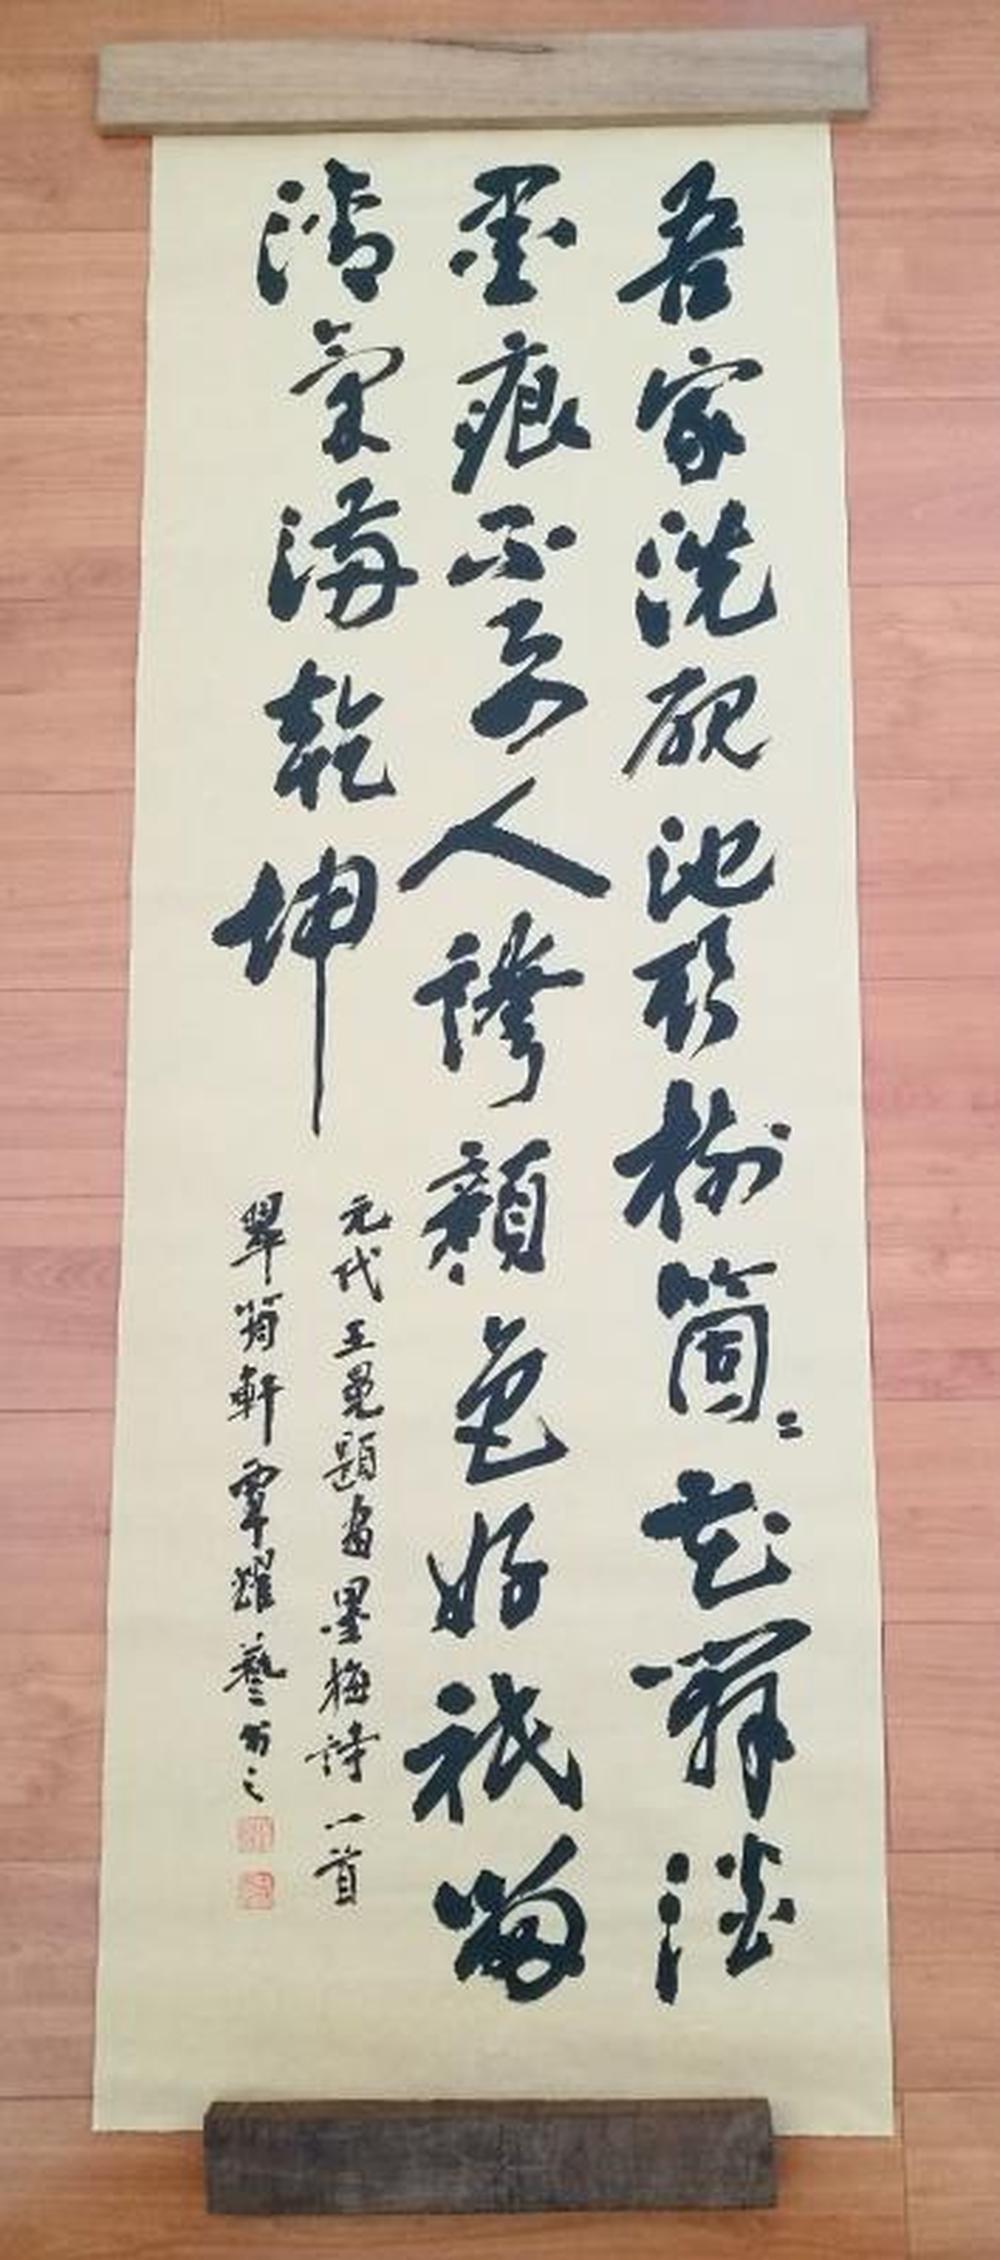 吾家洗硯池頭樹箇〻花開淡
墨痕不要人誇顏色好祇留
清氣滿乾坤
元代王冕題畵墨梅詩一首
翠筠軒覃耀藝书之